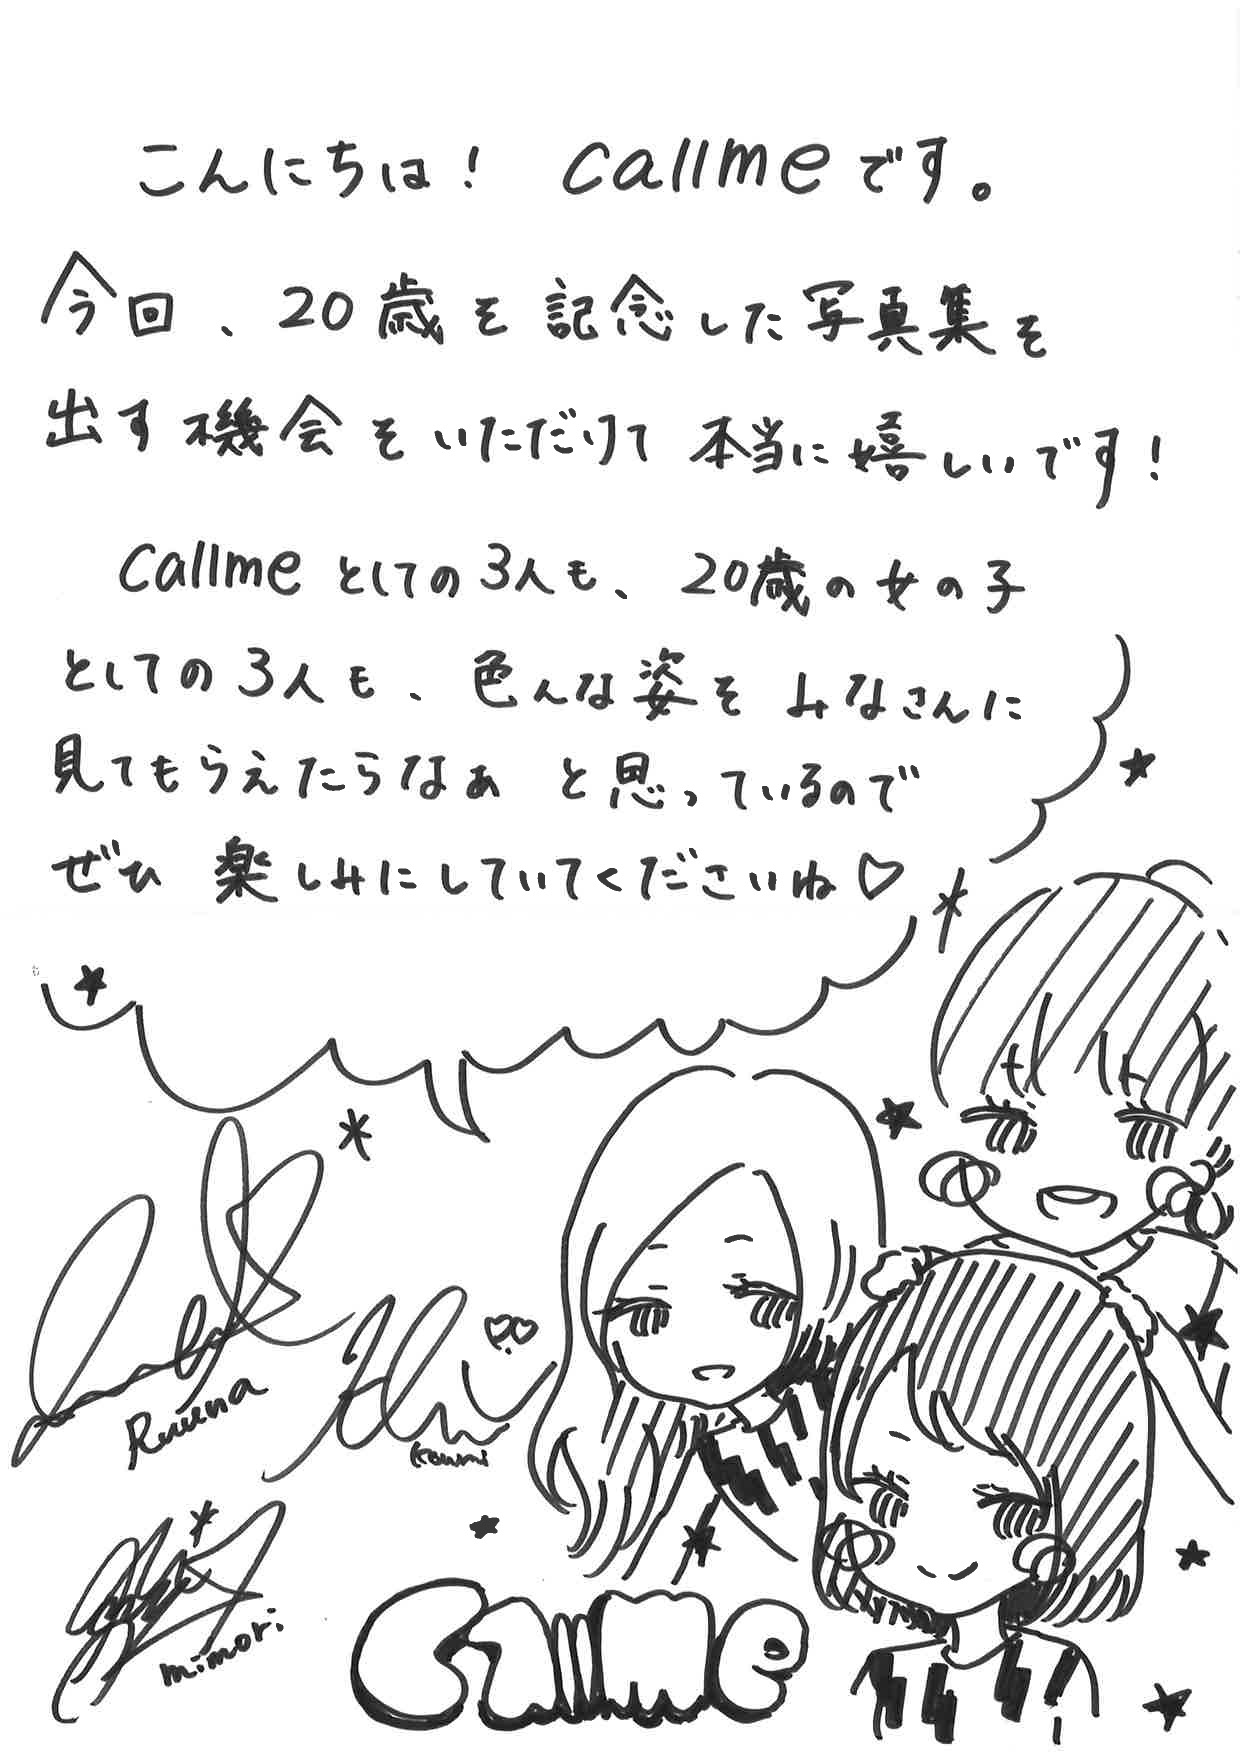 こんにちは! callmeです。
今回、20歳を記念した写真集を
出す機会をいただけて本当に嬉しいです!
callmeとしての3人も、20歳の女の子
としての3人も、色んな姿をみなさんに
見てもらえたらなぁと思っているので
ぜひ楽しみにしていてくださいね♡
Ruuna
Koumi
mimori
callme